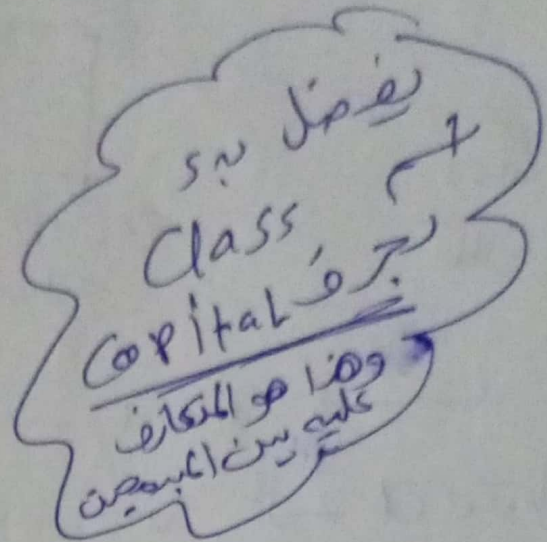 يفضل بدء
اسم Class
بحرف Capital
وهذا هو المتعارف
عليه بين المبرمجين